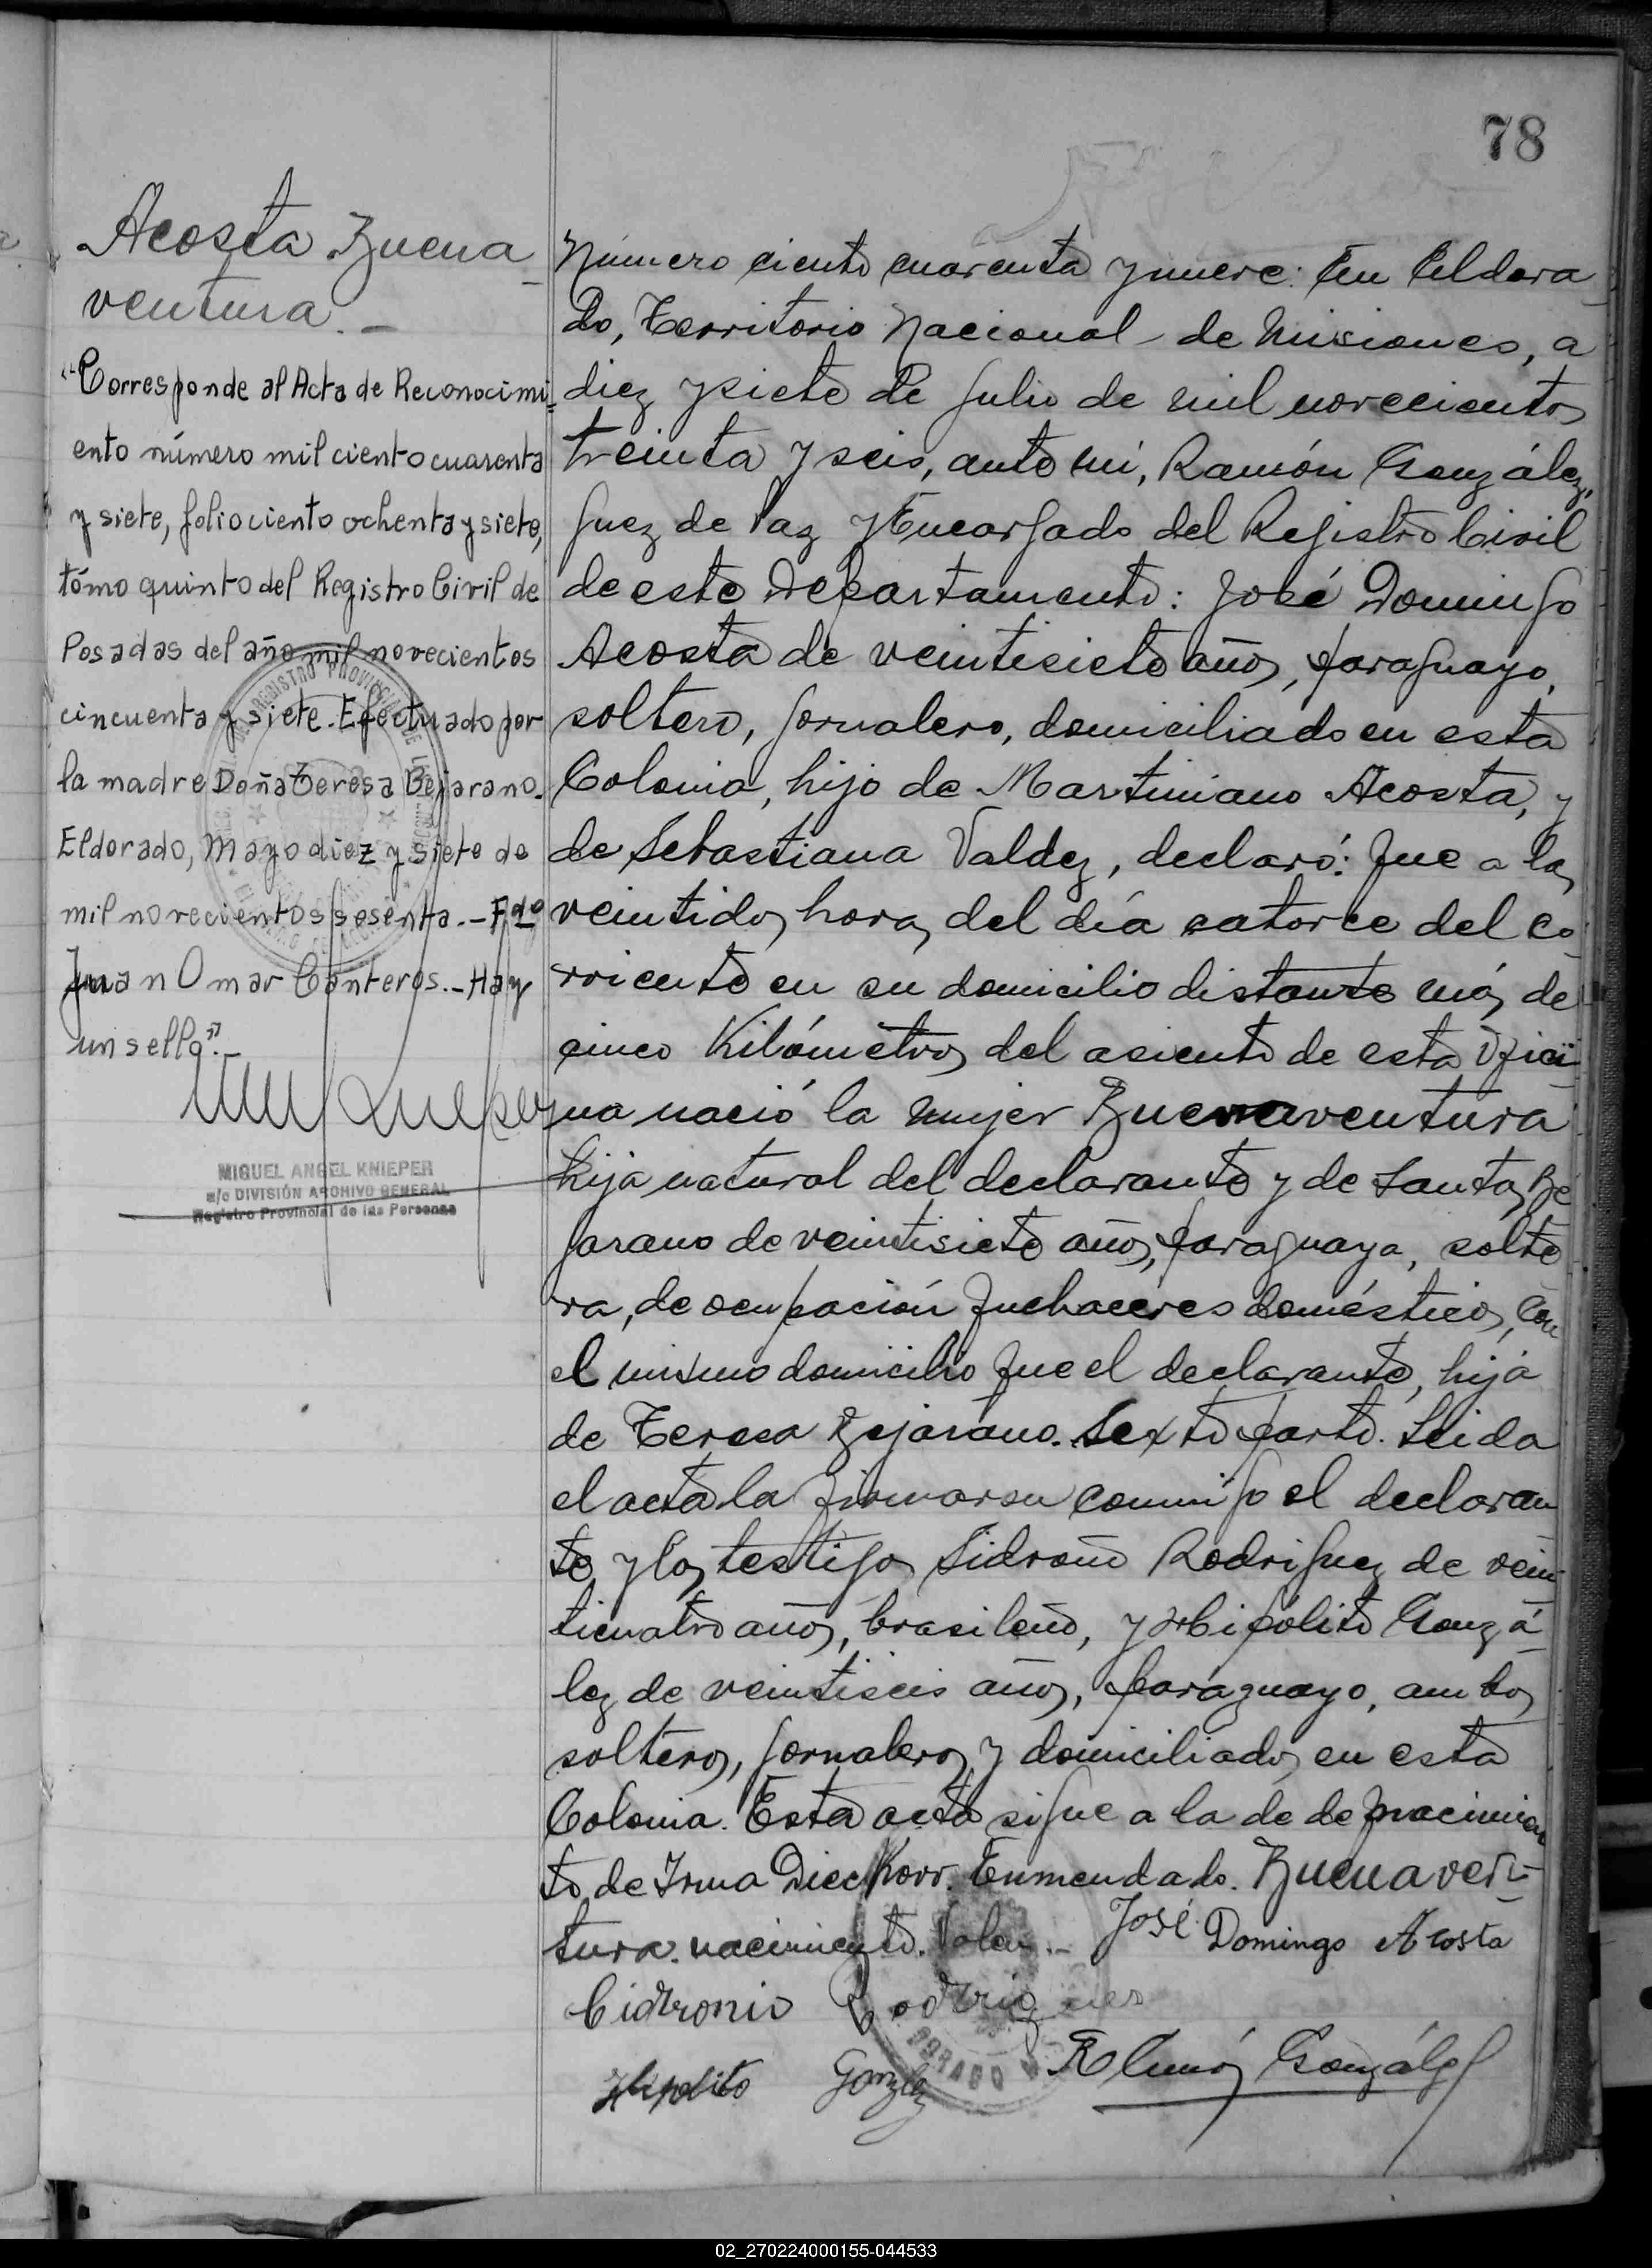 78
Acosta Buena
ventura.–
"Corresponde al Acta de Reconocimi
ento número mil ciento cuarenta
y siete, folio ciento ochenta y siete,
tómo quinto del Registro Civil de
Posadas del año mil novecientos
cincuenta y siete. Efectuado por
la madre Doña Teresa Bejarano.
Eldorado, Mayo diez y siete de
mil novecientos sesenta.– Fdo
Juan Omar Canteros.– Hay
un sello".–
MIGUEL ANGEL KNIEPER
a/c DIVISIÓN ARCHIVO GENERAL
Registro Provincial de las Personas
Número ciento cuarenta y nueve: En Eldora
do, Territorio Nacional de Misiones, a
diez y siete de Julio de mil novecientos
treinta y seis, ante mi, Ramón González,
Juez de Paz y Encargado del Registro Civil
de este Departamento: José Domingo
Acosta de veintisiete años, paraguayo,
soltero, jornalero, domiciliado en esta
Colonia, hijo de Martiniano Acosta, y
de Sebastiana Valdez, declaró: Que a las
veintidos horas del día catorce del co
rriente en su domicilio distante más de
cinco Kilómetros del asiento de esta Ofici
na nació la mujer Buenaventura
hija natural del declarante y de Santas Be
jarano de veintisiete años, paraguaya, solte
ra, de ocupación quehaceres domésticos, con
el mismo domicilio que el declarante, hija
de Teresa Bejarano. Sexto parto. Leida
el acta la firmaron conmigo el declaran
te y los testigos Sidronio Rodriguez de vein
ticuatro años, brasileño, y Hipólito Gonzá
lez de veintiseis años, paraguayo, ambos
solteros, jornaleros y domiciliados en esta
Colonia. Esta acta sigue a la de de nacimien
to de Irma Dieckow. Enmendado. Buenaven
tura. nacimiento. Valen.– José Domingo Acosta
Cidronio Rodrigues
Hipolito Gonzlez Ramón González
02_270224000155-044533